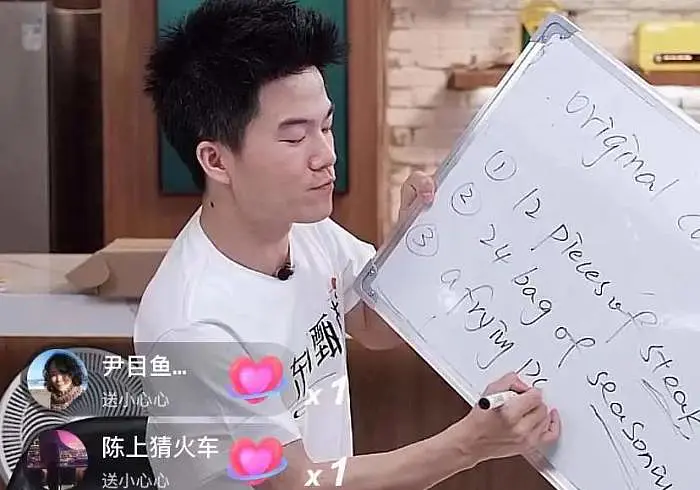 original
① 12 pieces of steak
② 24 bag of seasonin
③ a frying
东 甄
尹目鱼...
送小心心
x 1
陈上猜火车
送小心心
x 1